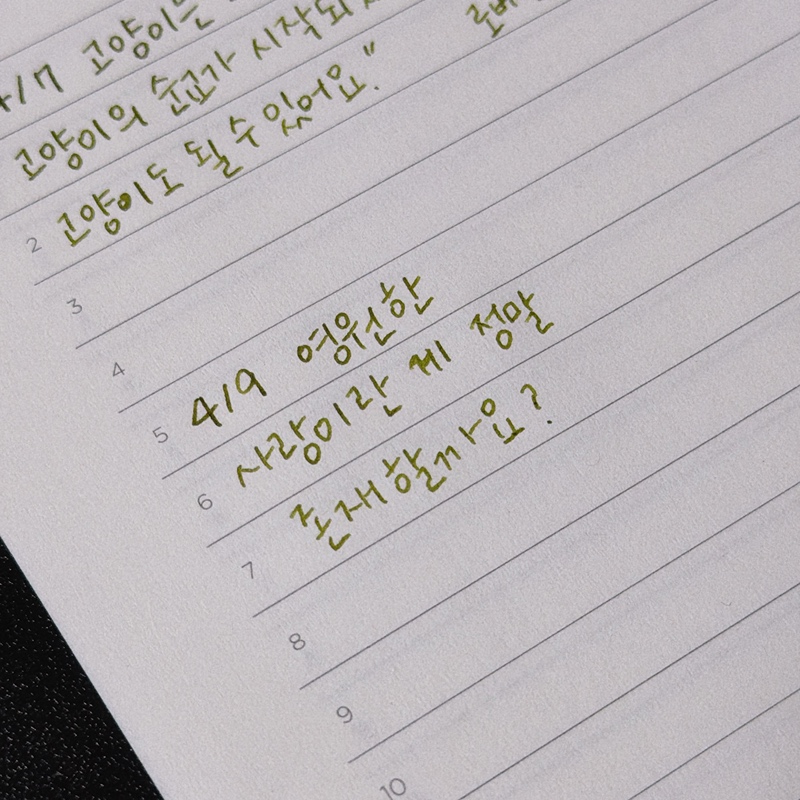 4/7 고양이는
고양이의 순교가 시작되
고양이도 될 수 있어요."
2
3
4
4/9 영원한
5
사랑이란 게 정말
6
존재할까요?
7
8
9
10